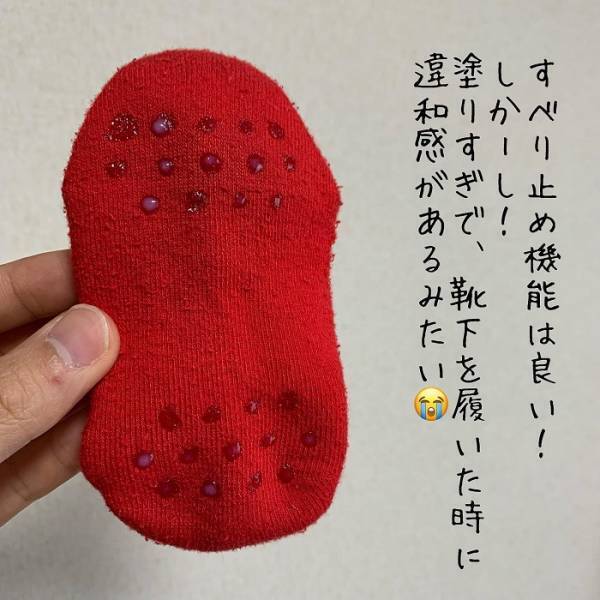 すべり止め機能は良い！
しかーし！
塗りすぎで、靴下を履いた時に
違和感があるみたい😭